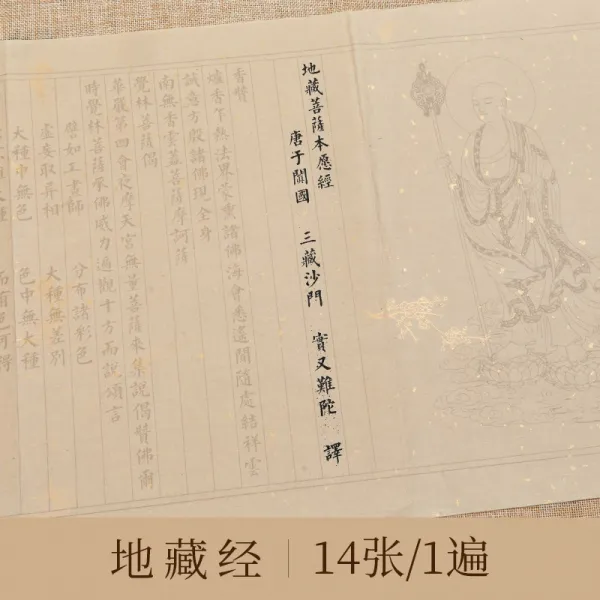 地藏菩薩本愿經
唐于闐國 三藏沙門 實叉難陀 譯
香贊
爐香乍熱法界蒙熏諸佛海會悉遙聞隨處結祥雲
誠意方殷諸佛現全身
南無香雲蓋菩薩摩訶薩
覺林菩薩偈
華嚴第四會夜摩天宮無量菩薩來集說偈贊佛爾
時覺林菩薩承佛威力遍觀十方而說頌言
譬如工畫師 分布諸彩色
虛妄取异相 大種無差別
大種中無色 色中無大種
地藏经 14张/1遍